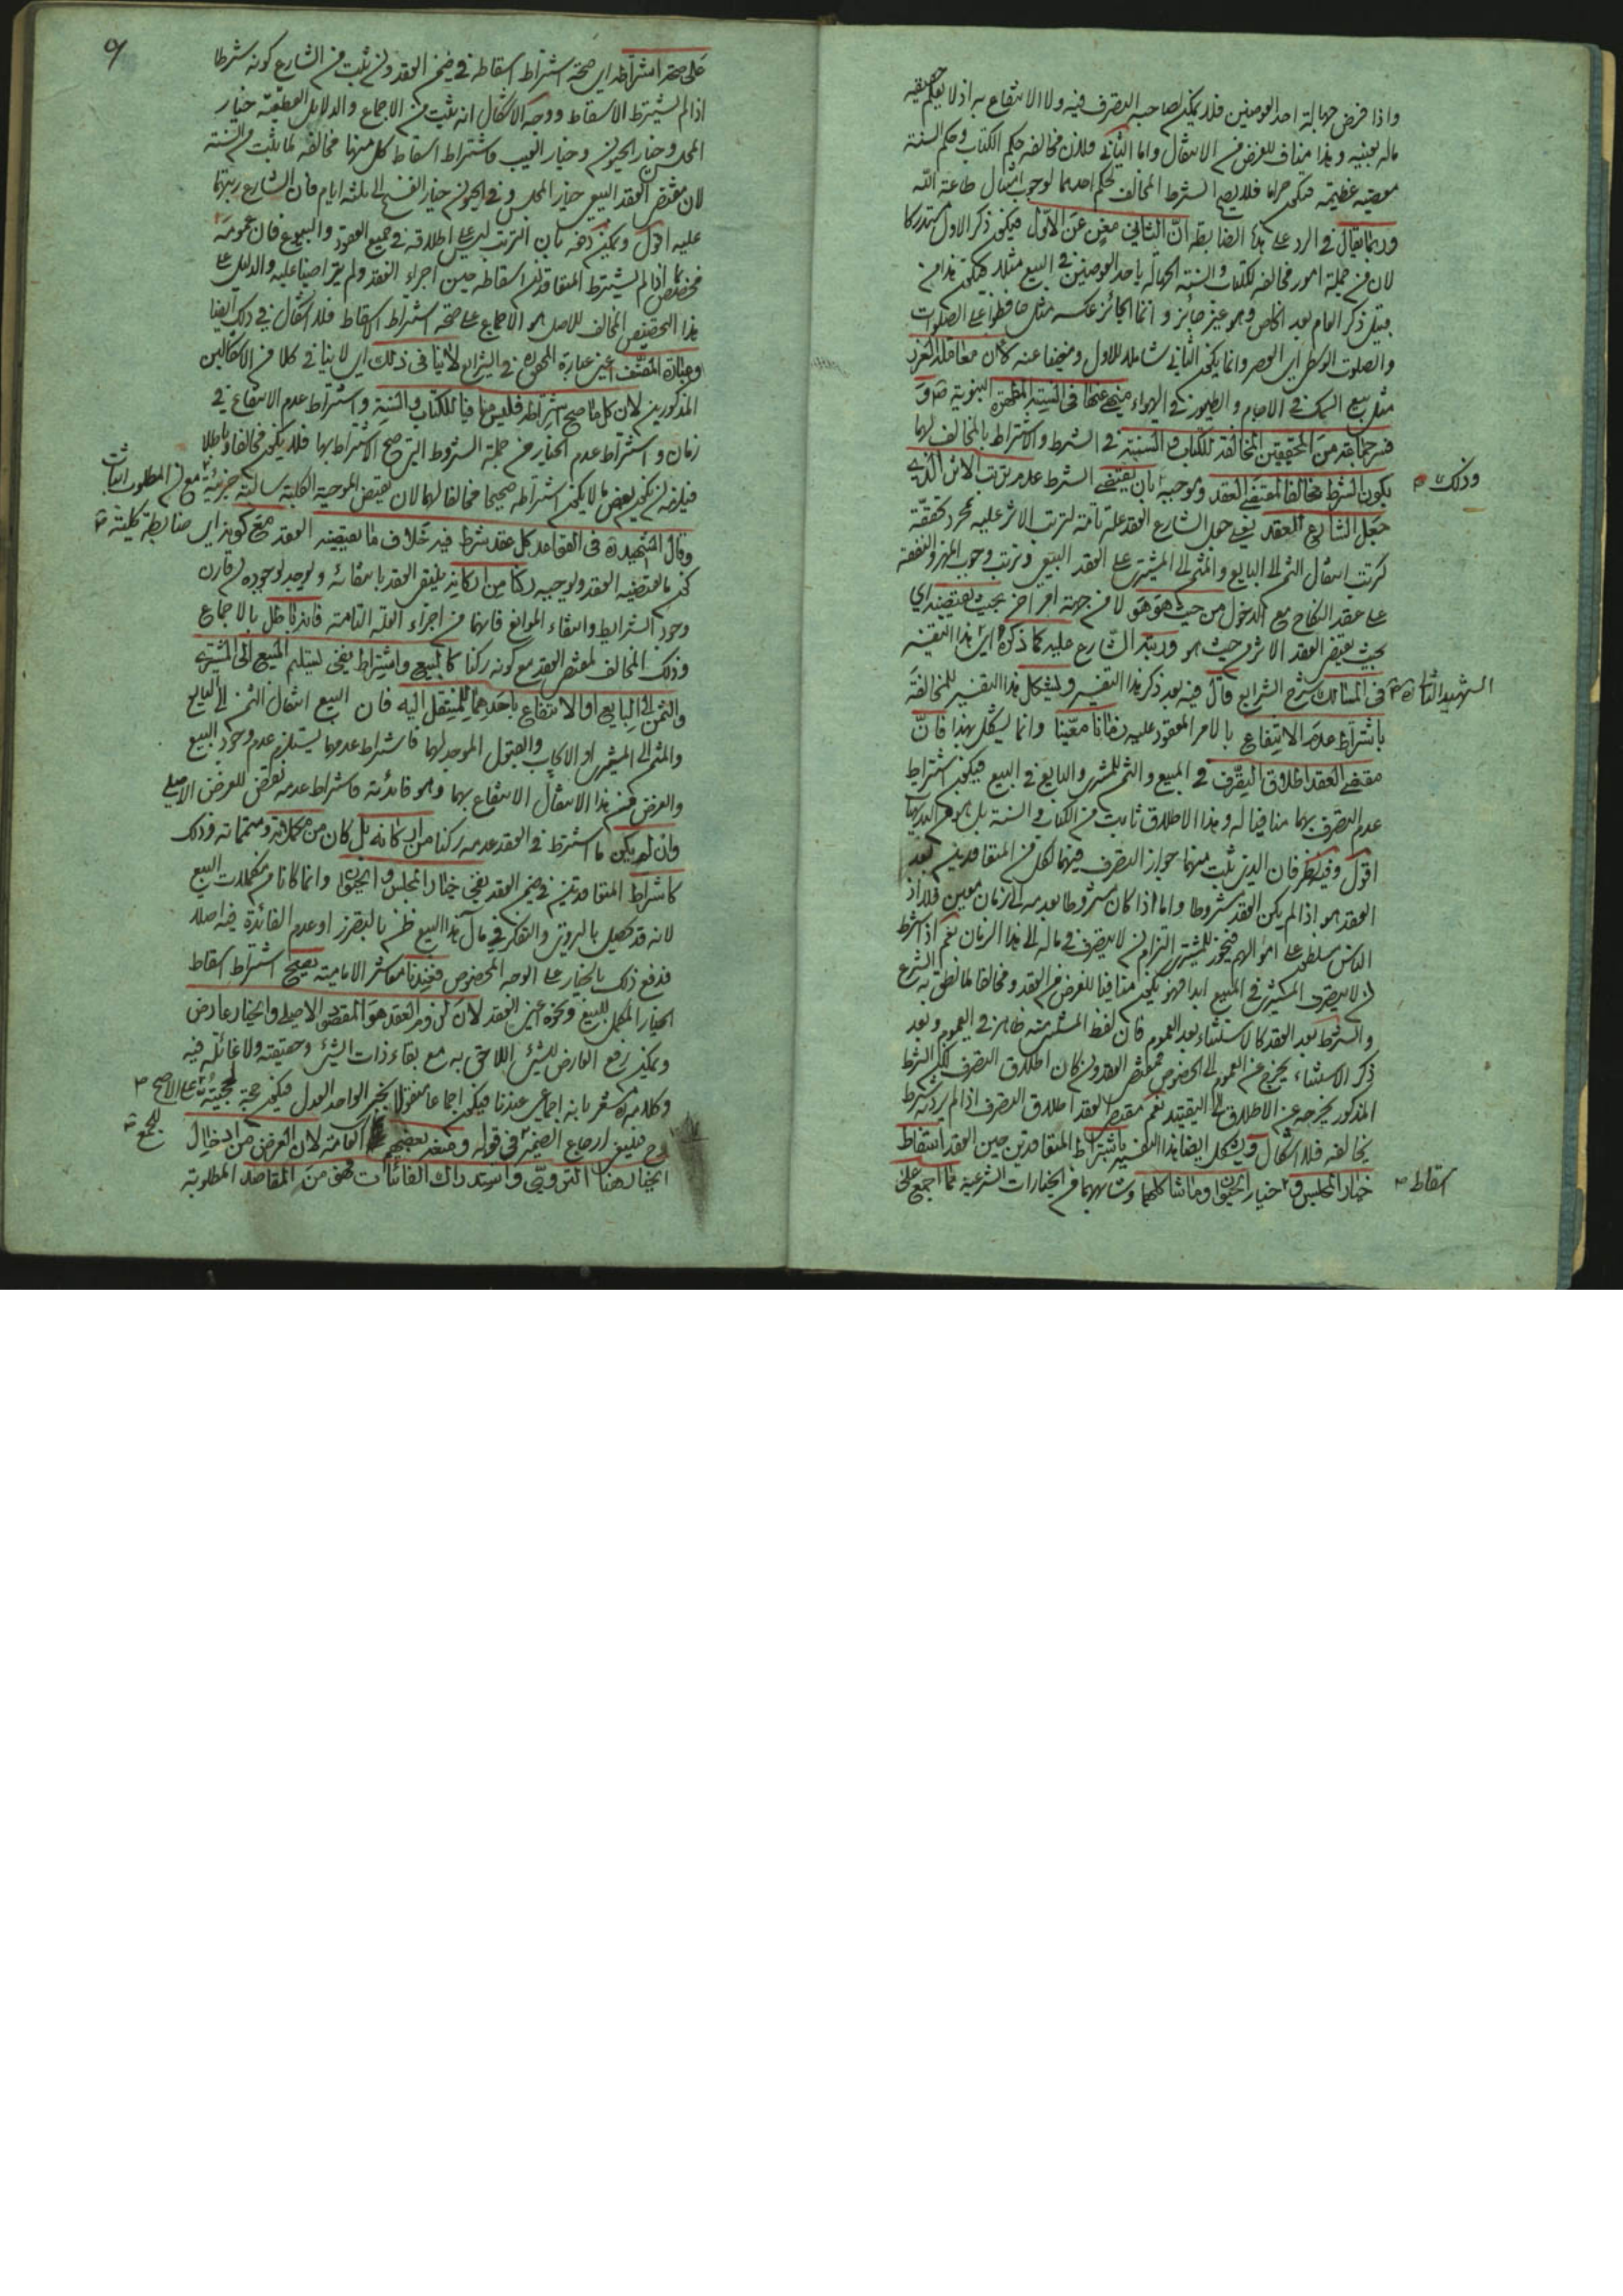 واذا فرض جهالة احد العوضين فلا يمكن لصاحبه التصرف فيه ولا الانتفاع به اذ لا يعلم حقيقة
ماله بعينه وهذا مناف للغرض من الانتقال واما الثاني فلان مخالفة حكم الكتاب وحكم السنة
معصية عظيمة فيكون حراما فلا يصح الشرط المخالف لحكم احدهما لوجوب امتثال طاعة الله
وربما يقال في الرد على هذه الضابطة ان الثاني مغن عن الاول فيكون ذكر الاول مستدركا
لان من جملة امور مخالفة للكتاب والسنة الجهالة باحد العوضين في البيع مثلا فيكون هذا من
قبيل ذكر العام بعد الخاص وهو غير جائز وانما الجائز عكسه مثل حافظوا على الصلوات
والصلوة الوسطى اي العصر وانما يكون الثاني شاملا للاول ومغنيا عنه
مثل بيع السمك في الاجام والطيور في الهواء منهي عنها في السنة المطهرة النبوية
فسر جماعة من المحققين المخالفة للكتاب والسنة في الشرط والاشتراط بالمخالف لهما
بكون الشرط مخالفا لمقتضى العقد وموجبه بان يقتضي الشرط عدم ترتب الاثر الذي
وذلك
جعل الشارع العقد يعني جعل الشارع العقد علة تامة لترتب الاثر عليه بمجرد تحققه
كترتب انتقال الثمن الى البايع والمثمن الى المشتري على العقد البيع وترتب وجوب المهر والنفقة
على عقد النكاح مع الدخول من حيث هو هو لا من جهة امر اخر بحيث يقتضيه اي
بحيث يقتضي العقد الاثر من حيث هو ورتبه الشارع عليه كما ذكره اي هذا التفسير
الشهيد الثاني ره في المسالك شرح الشرايع قال فيه بعد ذكر هذا التفسير ويشكل هذا التفسير للمخالفة
باشتراط عدم الانتفاع بالامر المعقود عليه زمانا معينا وانما يشكل بهذا فان
مقتضى العقد اطلاق التصرف في المبيع والثمن للمشتري والبايع في البيع فيكون اشتراط
عدم التصرف بهما منافيا له وهذا الاطلاق ثابت من الكتاب والسنة بل هو من البديهيات
اقول وفيه نظر فان الذي ثبت منهما جواز التصرف فيهما لكل من المتعاقدين بعد
العقد هو اذا لم يكن العقد مشروطا واما اذا كان مشروطا بعدمه الى زمان معين فلا اذ
الناس مسلطون على اموالهم فيجوز للمشتري التزام ان لا يتصرف في ماله الى هذا الزمان نعم اذا شرط
ان لا يتصرف المشتري في المبيع ابدا فهو يكون منافيا للغرض من العقد ومخالفا لما نطق به الشرع
والشرط بعد العقد كالاستثناء بعد العموم فان لفظ المستثنى منه ظاهر في العموم وبعد
ذكر الاستثناء يخرج عن العموم الى الخصوص فمقتضى العقد وان كان اطلاق التصرف لكن الشرط
المذكور يخرجه عن الاطلاق الى التقييد نعم مقتضى العقد اطلاق التصرف اذا لم يرد به شرط
يخالفه فلا اشكال ويشكل ايضا هذا التفسير باشتراط المتعاقدين حين العقد اسقاط
خيار المجلس و خيار الحيوان وما شاكلهما وشابههما من الخيارات الشرعية مما اجمع على
اسقاط
٩
على صحة اشتراطه اي صحة اشتراط اسقاطه في ضمن العقد وان ثبت من الشارع كونه شرطا
اذا لم يشترط الاسقاط ووجه الاشكال انه ثبت من الاجماع والدلايل القطعية خيار
المجلس وخيار الحيوان وخيار العيب فاشتراط اسقاط كل منهما مخالفة لما ثبت من السنة
لان مقتضى العقد البيع خيار المجلس وفي الحيوان خيار الفسخ الى ثلثة ايام فان الشارع رتبهما
عليه اقول ويمكن دفعه بان الترتب ليس على اطلاقه في جميع العقود والبيوع فان عمومه
مخصص بما اذا لم يشترط المتعاقدان اسقاطه حين اجراء العقد ولم يتراضيا عليه والدليل على
هذا التخصيص المخالف للاصل هو الاجماع على صحة اشتراط الاسقاط فلا اشكال في ذلك ايضا
وعبارة المصنف اعني عبارة المحقق ره في الشرايع لا ينافى ذلك اي لا ينافي كلا من الاشكالين
المذكورين لان كل ما صح اشتراطه فليس منافيا للكتاب والسنة واشتراط عدم الانتفاع في
زمان واشتراط عدم الخيار من جملة الشروط التي صح الاشتراط بها فلا يكون مخالفا وباطلا
فيلزم ان يكون بعض ما لا يكون اشتراطه صحيحا مخالفا لهما لان نقيض الموجبة الكلية سالبة جزئية مع ان المطلوب اثبات
وقال الشهيد ره في القواعد كل عقد شرط فيه خلاف ما يقتضيه العقد مع كونه اي ضابطة كلية
كون ما يقتضيه العقد ويوجبه ركنا من اركانه ينتفي العقد بانتفائه ويوجد بوجوده ان قارن
وجود الشرايط وانتفاء الموانع فانهما من اجزاء العلة التامة فانه باطل بالاجماع
وذلك المخالف لمقتضى العقد مع كونه ركنا كالمبيع واشتراط نفي تسليم المبيع الى المشتري
والثمن الى البايع او الانتفاع باحدهما للمنتقل اليه فان البيع انتقال الثمن الى البايع
والمثمن الى المشتري او الايجاب والقبول الموجد لهما فاشتراط عدمهما يستلزم عدم وجود البيع
والغرض من هذا الانتقال الانتفاع بهما وهو فائدته فاشتراط عدمه نقض للغرض الاصلي
وان لم يكن ما اشترط في العقد عدمه ركنا من اركانه بل كان من مكملاته ومتمماته وذلك
كاشتراط المتعاقدين في ضمن العقد نفي خيار المجلس و الحيوان وانما كانا من مكملات البيع
لانه قد يحصل بالتروي والتفكر في مآل هذا البيع ظن بالتضرر او عدم الفائدة فيه اصلا
فدفع ذلك بالخيار على الوجه المخصوص فعندنا معاشر الامامية يصح اشتراط اسقاط
الخيار المكمل للبيع ونحوه اعني العقد لان لزوم العقد هو المقصود الاصلي والخيار عارض
ويمكن رفع العارض للشئ اللاحق به مع بقاء ذات الشئ وحقيقته ولا غائلة فيه
وكلامه ره مشعر بانه اجماعي عندنا فيكون اجماعا منقولا بخبر الواحد العدل فيكون حجة لحجيته على الاصح
وح فينبغي ارجاع الضمير في قوله ومنعه بعضهم العامة لان الغرض من ادخال
للجمع
الخيار هنا التروي واستدراك الفائتات فهو من المقاصد المطلوبة